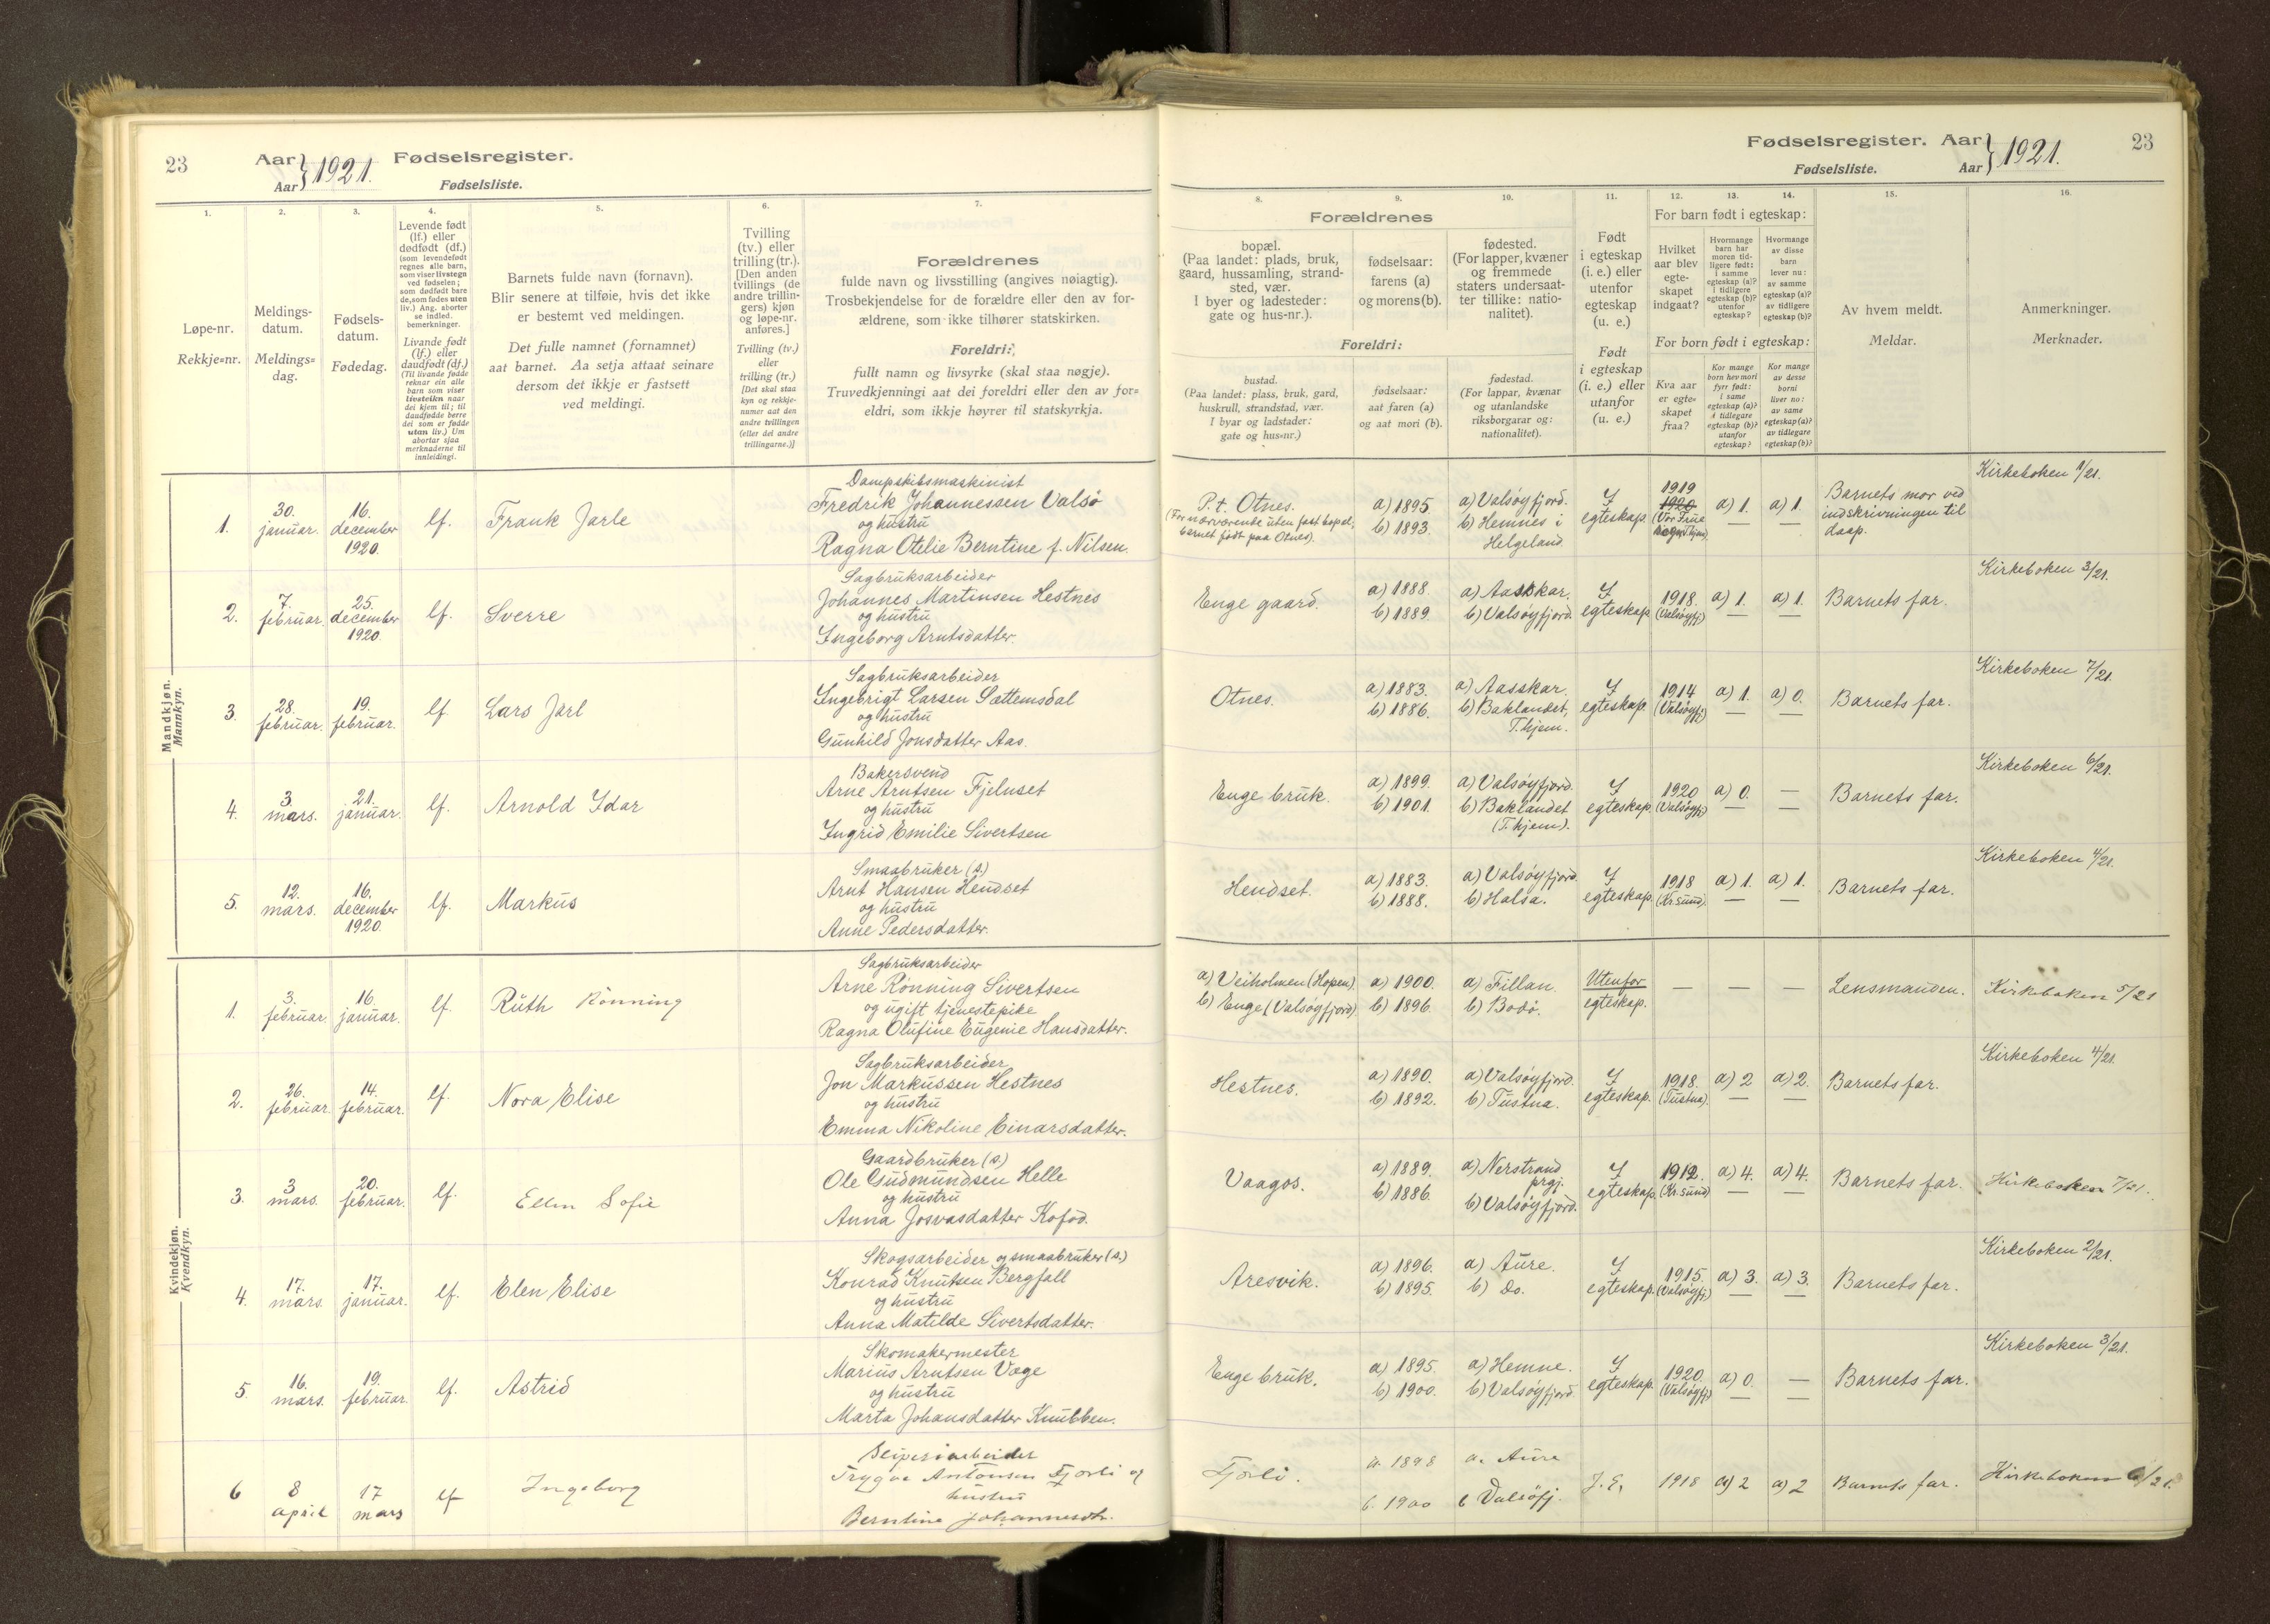 23
Aar } 1921. Fødselsregister.
Aar Fødselsliste.
Fødselsregister. Aar } 1921. 23
Fødselsliste. Aar
1.
Løpe-nr.
Rekkje=nr.
2.
Meldings-
datum.
Meldings=
dag.
3.
Fødsels-
datum.
Fødedag.
4.
Levende født
(lf.) eller
dødfødt (df.)
(som levendefødt
regnes alle barn,
som viser livstegn
ved fødselen;
som dødfødt bare
de, som fødes uten
liv.) Ang. aborter
se indled.
bemerkninger.
Livande født
(lf.) eller
daudfødt (df.)
(Til livande fødde
reknar ein alle
barn som viser
livsteikn naar
dei kjem til; til
daudfødde berre
dei som er fødde
utan liv.) Um
abortar sjaa
merknaderne til
innleidingi.
5.
Barnets fulde navn (fornavn).
Blir senere at tilføie, hvis det ikke
er bestemt ved meldingen.
Det fulle namnet (fornamnet)
aat barnet. Aa setja attaat seinare
dersom det ikkje er fastsett
ved meldingi.
6.
Tvilling
(tv.) eller
trilling (tr.).
[Den anden
tvillings (de
andre trillin-
gers) kjøn
og løpe-nr.
anføres.]
Tvilling (tv.)
eller
trilling (tr.)
[Det skal staa
kyn og rekkje-
numer aat den
andre tvillingen
(eller dei andre
trillingarne.)]
7.
Forældrenes
fulde navn og livsstilling (angives nøiagtig).
Trosbekjendelse for de forældre eller den av for-
ældrene, som ikke tilhører statskirken.
Foreldri:
fullt namn og livsyrke (skal staa nøgje).
Truvedkjenningi aat dei foreldri eller den av for=
eldri, som ikkje høyrer til statskyrkja.
8.
Forældrenes
bopæl.
(Paa landet: plads, bruk,
gaard, hussamling, strand-
sted, vær.
I byer og ladesteder:
gate og hus-nr.).
Foreldri:
bustad.
(Paa landet: plass, bruk, gard,
huskrull, strandstad, vær.
I byar og ladstader:
gate og hus=nr.)
9.
fødselsaar:
farens (a)
og morens(b).
fødselsaar:
aat faren (a)
og aat mori (b).
10.
fødested.
(For lapper, kvæner
og fremmede
staters undersaat-
ter tillike: natio-
nalitet).
fødestad.
(For lappar, kvænar
og utanlandske
riksborgarar og:
nationalitet).
11.
Født
i egteskap
(i. e.) eller
utenfor
egteskap
(u. e.)
Født
i egteskap
(i. e.) eller
utanfor
(u. e.)
12. 13. 14.
For barn født i egteskap:
Hvilket
aar blev
egte-
skapet
indgaat?
Hvormange
barn har
moren tid-
ligere født:
i samme
egteskap (a)?
i tidligere
egteskap (b)?
utenfor
egteskap?
Hvormange
av disse
barn
lever nu:
av samme
egteskap (a)?
av tidligere
egteskap (b)?
For born født i egteskap:
Kva aar
er egte=
skapet
fraa?
Kor mange
born hev mori
fyrr født:
i same
egteskap (a)?
i tidlegare
egteskap (b)?
utanfor
egteskap?
Kor mange
av desse
borni
liver no:
av same
egteskap (a)?
av tidlegare
egteskap (b)?
15.
Av hvem meldt.
Meldar.
16.
Anmerkninger.
Merknader.
Mandkjøn.
Mannkyn.
1. 30. januar. 16. december 1920. lf. Frank Jarle
Dampskibsmaskinist
Fredrik Johannessen Valsö
og hustru
Ragna Otelie Berntine f. Nilsen.
P.t. Otnes.
(For nærværende uten fast bopel,
barnet født paa Otnes).
a) 1895. b) 1893.
a) Valsöyfjord.
b) Hemnes i
Helgeland.
I egteskap. 1919 1920 (Vor Frue Thjem) a) 1. — a) 1. —
Barnets mor ved
indskrivningen til
daap.
Kirkeboken 1/21.
2. 7. februar. 25. december 1920. lf. Sverre
Sagbruksarbeider
Johannes Martinsen Hestnes
og hustru
Ingeborg Arntsdatter.
Enge gaard. a) 1888. b) 1889. a) Aasskar. b) Valsöyfjord.
I egteskap. 1918. (Valsöyfj.) a) 1. — a) 1. — Barnets far. Kirkeboken 3/21.
3. 28. februar. 19. februar. lf. Lars Jarl
Sagbruksarbeider
Ingebrigt Larsen Sættemsdal
og hustru
Gunhild Jonsdatter Aas.
Otnes. a) 1883. b) 1886. a) Aasskar. b) Baklandet, T.hjem.
I egteskap. 1914 (Valsöyfj.) a) 1. — a) 0. — Barnets far. Kirkeboken 7/21.
4. 3. mars. 21. januar. lf. Arnold Idar
Bakersvend
Arne Arntsen Fjelnset
og hustru
Ingrid Emilie Sivertsen
Enge bruk. a) 1899. b) 1901. a) Valsöyfjord. b) Baklandet (T.hjem).
I egteskap. 1920 (Valsöyfj.) a) 0. — — — Barnets far. Kirkeboken 6/21.
5. 12. mars. 16. december 1920. lf. Markus
Smaabruker (s.)
Arnt Hansen Hendset
og hustru
Anne Pedersdatter.
Hendset. a) 1883. b) 1888. a) Valsöyfjord. b) Halsa.
I egteskap. 1918 (Kr.sund). a) 1. — a) 1. — Barnets far. Kirkeboken 4/21.
Kvindekjøn.
Kvendkyn.
1. 3. februar. 16. januar. lf. Ruth Rönning
Sagbruksarbeider
Arne Rönning Sivertsen
og ugift tjenestepike
Ragna Olufine Eugenie Hansdatter.
a) Veiholmen (Hopen).
b) Enge (Valsöyfjord).
a) 1900. b) 1896. a) Fillan. b) Bodö.
Utenfor egteskap. — — — Lensmanden. Kirkeboken 5/21
2. 26. februar. 14. februar. lf. Nora Elise
Sagbruksarbeider
Jon Markussen Hestnes
og hustru
Emma Nikoline Einarsdatter.
Hestnes. a) 1890. b) 1892. a) Valsöyfjord. b) Tustna.
I egteskap. 1918. (Tustna). a) 2 — a) 2. — Barnets far. Kirkeboken 4/21.
3. 3 mars. 20. februar. lf. Ellen Sofie
Gaardbruker (s.)
Ole Gudmundsen Helle
og hustru
Anna Josvasdatter Kofod.
Vaagos. a) 1889. b) 1886. a) Nerstrand prgj. b) Valsöyfjord.
I egteskap. 1912. (Kr.sund) a) 4. — a) 4. — Barnets far. Kirkeboken 7/21.
4. 17. mars. 17. januar. lf. Elen Elise
Skogsarbeider og smaabruker (s.)
Konrad Knutsen Bergfall
og hustru
Anna Matilde Sivertsdatter.
Aresvik. a) 1896. b) 1895. a) Aure. b) Do.
I egteskap. 1915. (Valsöyfj.) a) 3. — a) 3. — Barnets far. Kirkeboken 2/21.
5. 16. mars. 19. februar. lf. Astrid
Skomakermester
Marius Arntsen Vage
og hustru
Marta Johansdatter Knubben.
Enge bruk. a) 1895. b) 1900. a) Hemne. b) Valsöyfjord.
I egteskap. 1920. (Valsöyfj) a) 0. — — — Barnets far. Kirkeboken 3/21.
6 8 april 17 mars lf Ingeborg
Sliperiarbeider
Trygve Antonsen Fjorli og
hustru
Berntine Johannesdtr.
Fjorli. a. 1898 b. 1900 a. Aure b Valsöfj.
I. E. 1918 a) 2 a) 2 Barnets far. Kirkeboken 6/21.